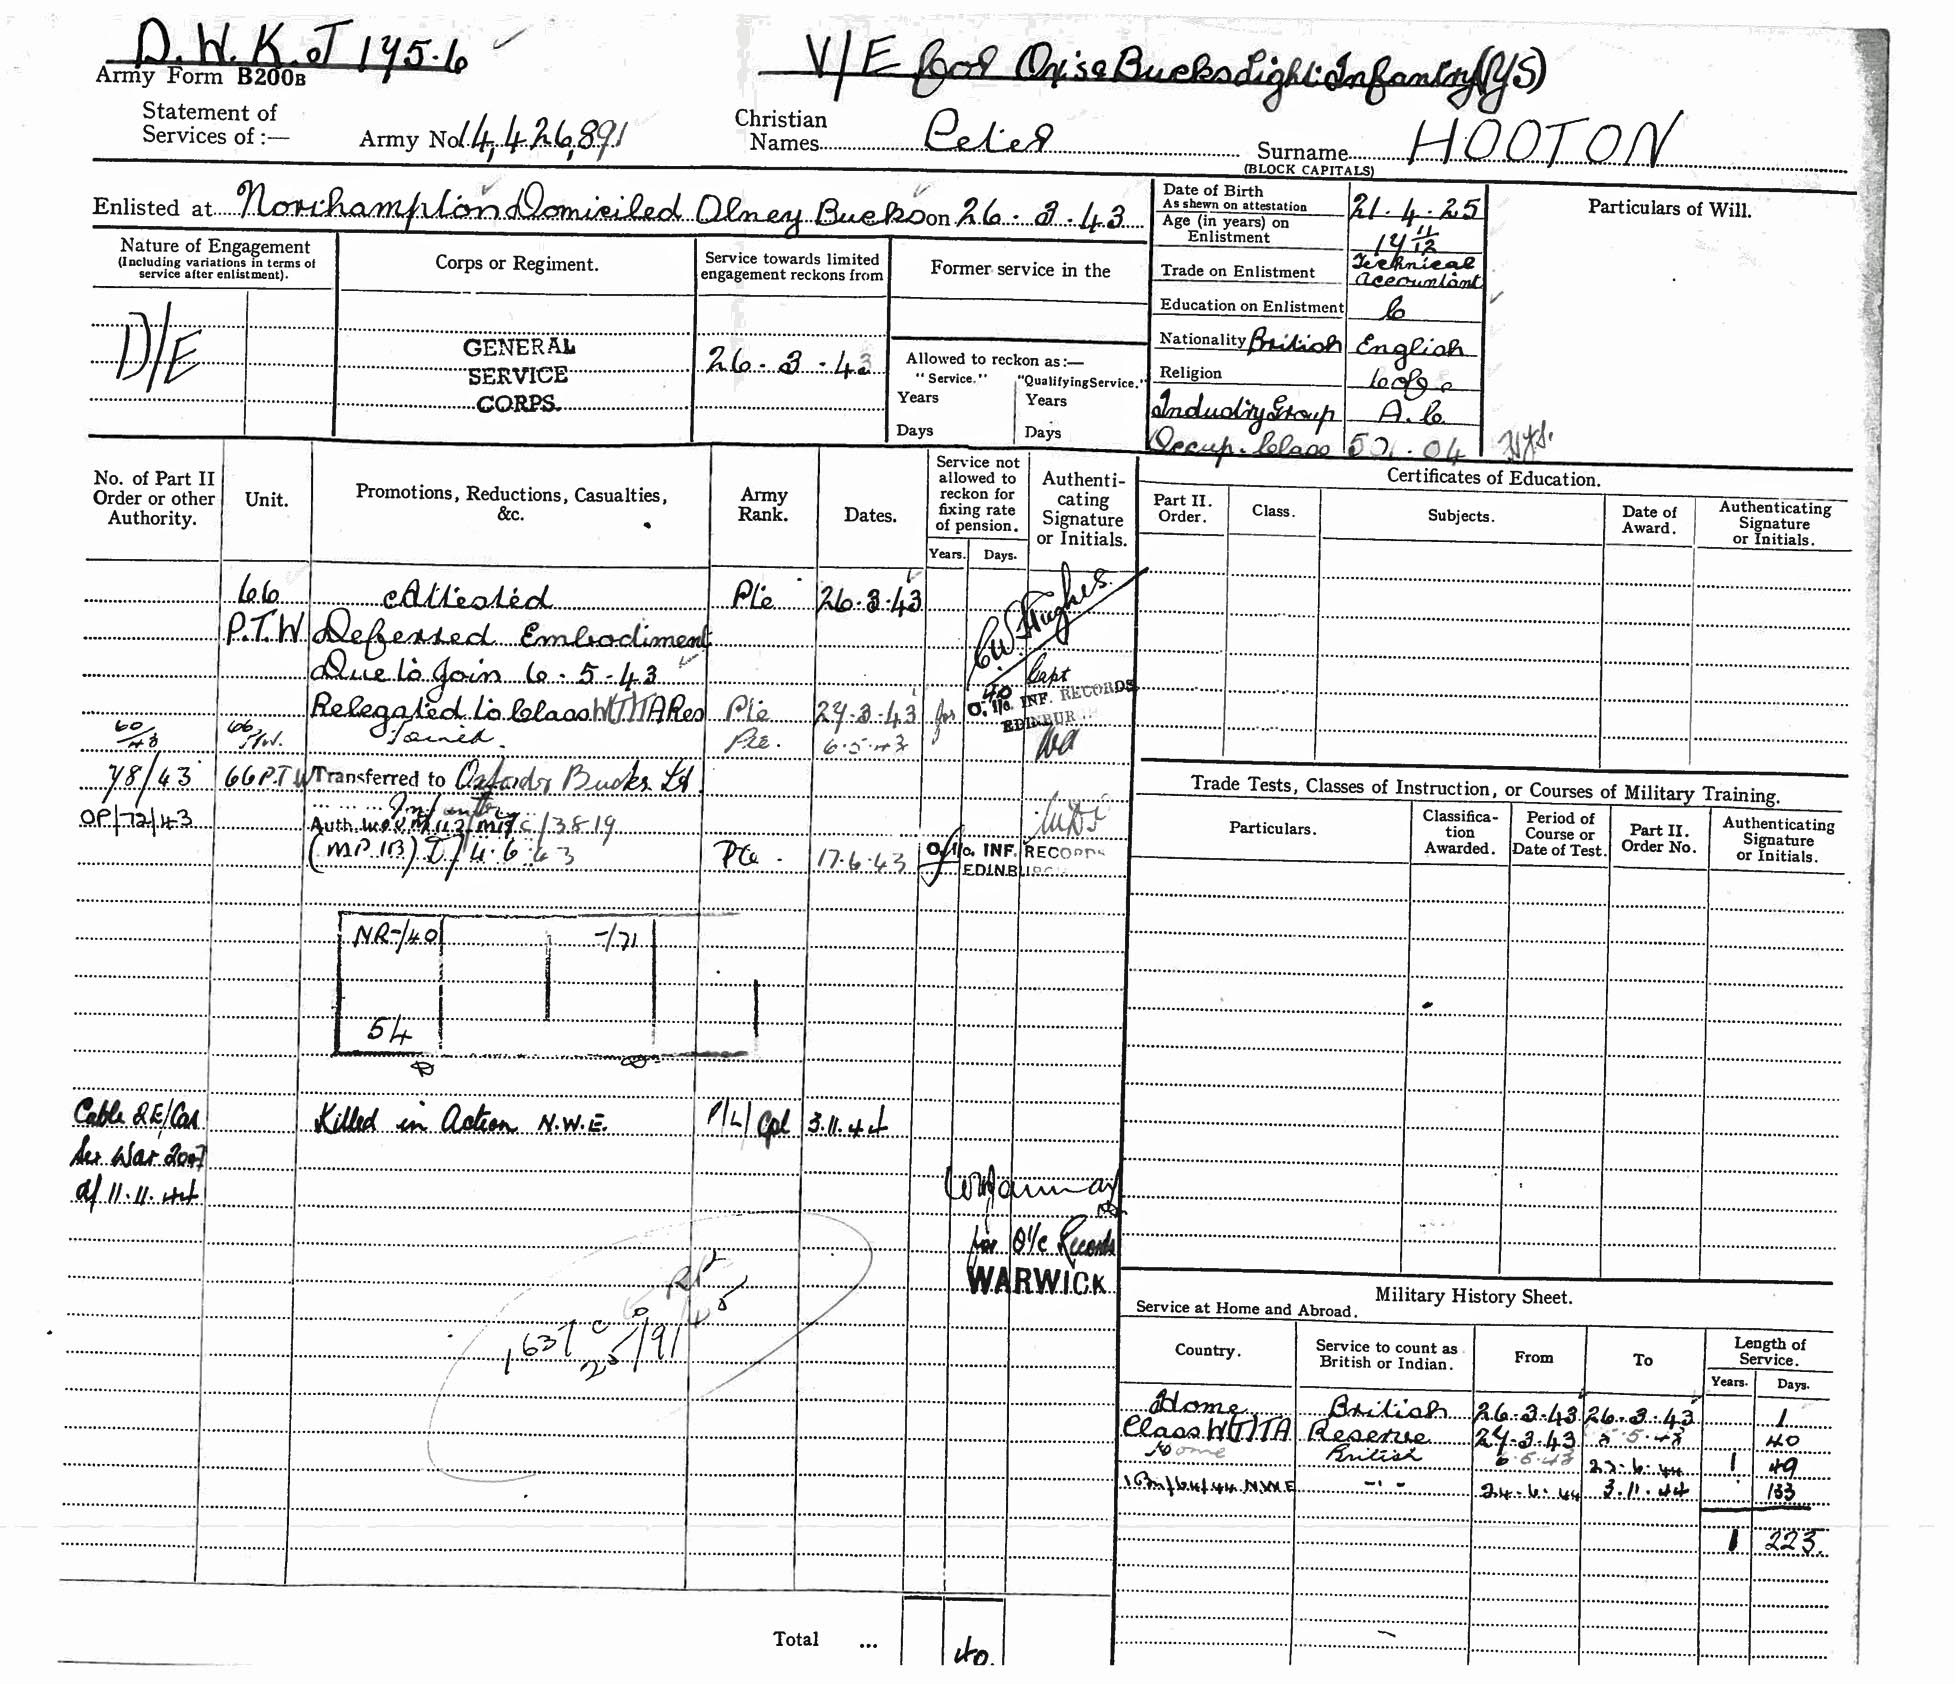 D.W.K.
Army Form B200B
V/E for Ox & Bucks Light Infantry (YS)
Statement of
Services of :—
Army No. 14,426,891
Christian
Names Peter
Surname HOOTON
(BLOCK CAPITALS)
Enlisted at Northampton Domiciled Olney Bucks on 26.3.43
Date of Birth
As shewn on attestation
21.4.25
Age (in years) on
Enlistment
17 11/12
Trade on Enlistment
Technical
Accountant
Education on Enlistment
C
Nationality British English
Religion
C of E
Industry Group A.C.
Occup. Class
Particulars of Will.
Nature of Engagement
(Including variations in terms of
service after enlistment).
D/E
Corps or Regiment.
GENERAL
SERVICE
CORPS.
Service towards limited
engagement reckons from
26.3.43
Former service in the
Allowed to reckon as:—
"Service." "Qualifying Service."
Years Years
Days Days
No. of Part II
Order or other
Authority.
Unit.
Promotions, Reductions, Casualties,
&c.
Army
Rank.
Dates.
Service not
allowed to
reckon for
fixing rate
of pension.
Years. Days.
Authenti-
cating
Signature
or Initials.
66 Attested Pte 26.3.43
P.T.W Deferred Embodiment
Due to Join 6.5.43
Relegated to Class W(T)TA Res Pte 27.3.43 for
C.W. Hughes
Capt
O. i/c. INF. RECORDS
EDINBURGH
60/43 66 P.T.W. Joined. Pte. 6.5.43
78/43 66 P.T.W Transferred to Oxford & Bucks Lt.
Infantry
OP/72/43 Auth
4.6.43 Pte. 17.6.43
O. i/c. INF. RECORDS
EDINBURGH
NR-/40 -/71
54
Cable 2E/Cas Killed in Action N.W.E. P/L/Cpl 3.11.44
Ser War 2047
d/ 11.11.44
for O i/c Records
WARWICK
Total ... 40.
Certificates of Education.
Part II.
Order.
Class.
Subjects.
Date of
Award.
Authenticating
Signature
or Initials.
Trade Tests, Classes of Instruction, or Courses of Military Training.
Particulars.
Classifica-
tion
Awarded.
Period of
Course or
Date of Test.
Part II.
Order No.
Authenticating
Signature
or Initials.
Military History Sheet.
Service at Home and Abroad.
Country.
Service to count as
British or Indian.
From
To
Length of
Service.
Years. Days.
Home British 26.3.43 26.3.43 1
Class W(T)TA Reserve 27.3.43 5.5.43 40
Home British 6.5.43 23.6.44 1 49
N.W.E -"- 24.6.44 3.11.44 133
1 223.